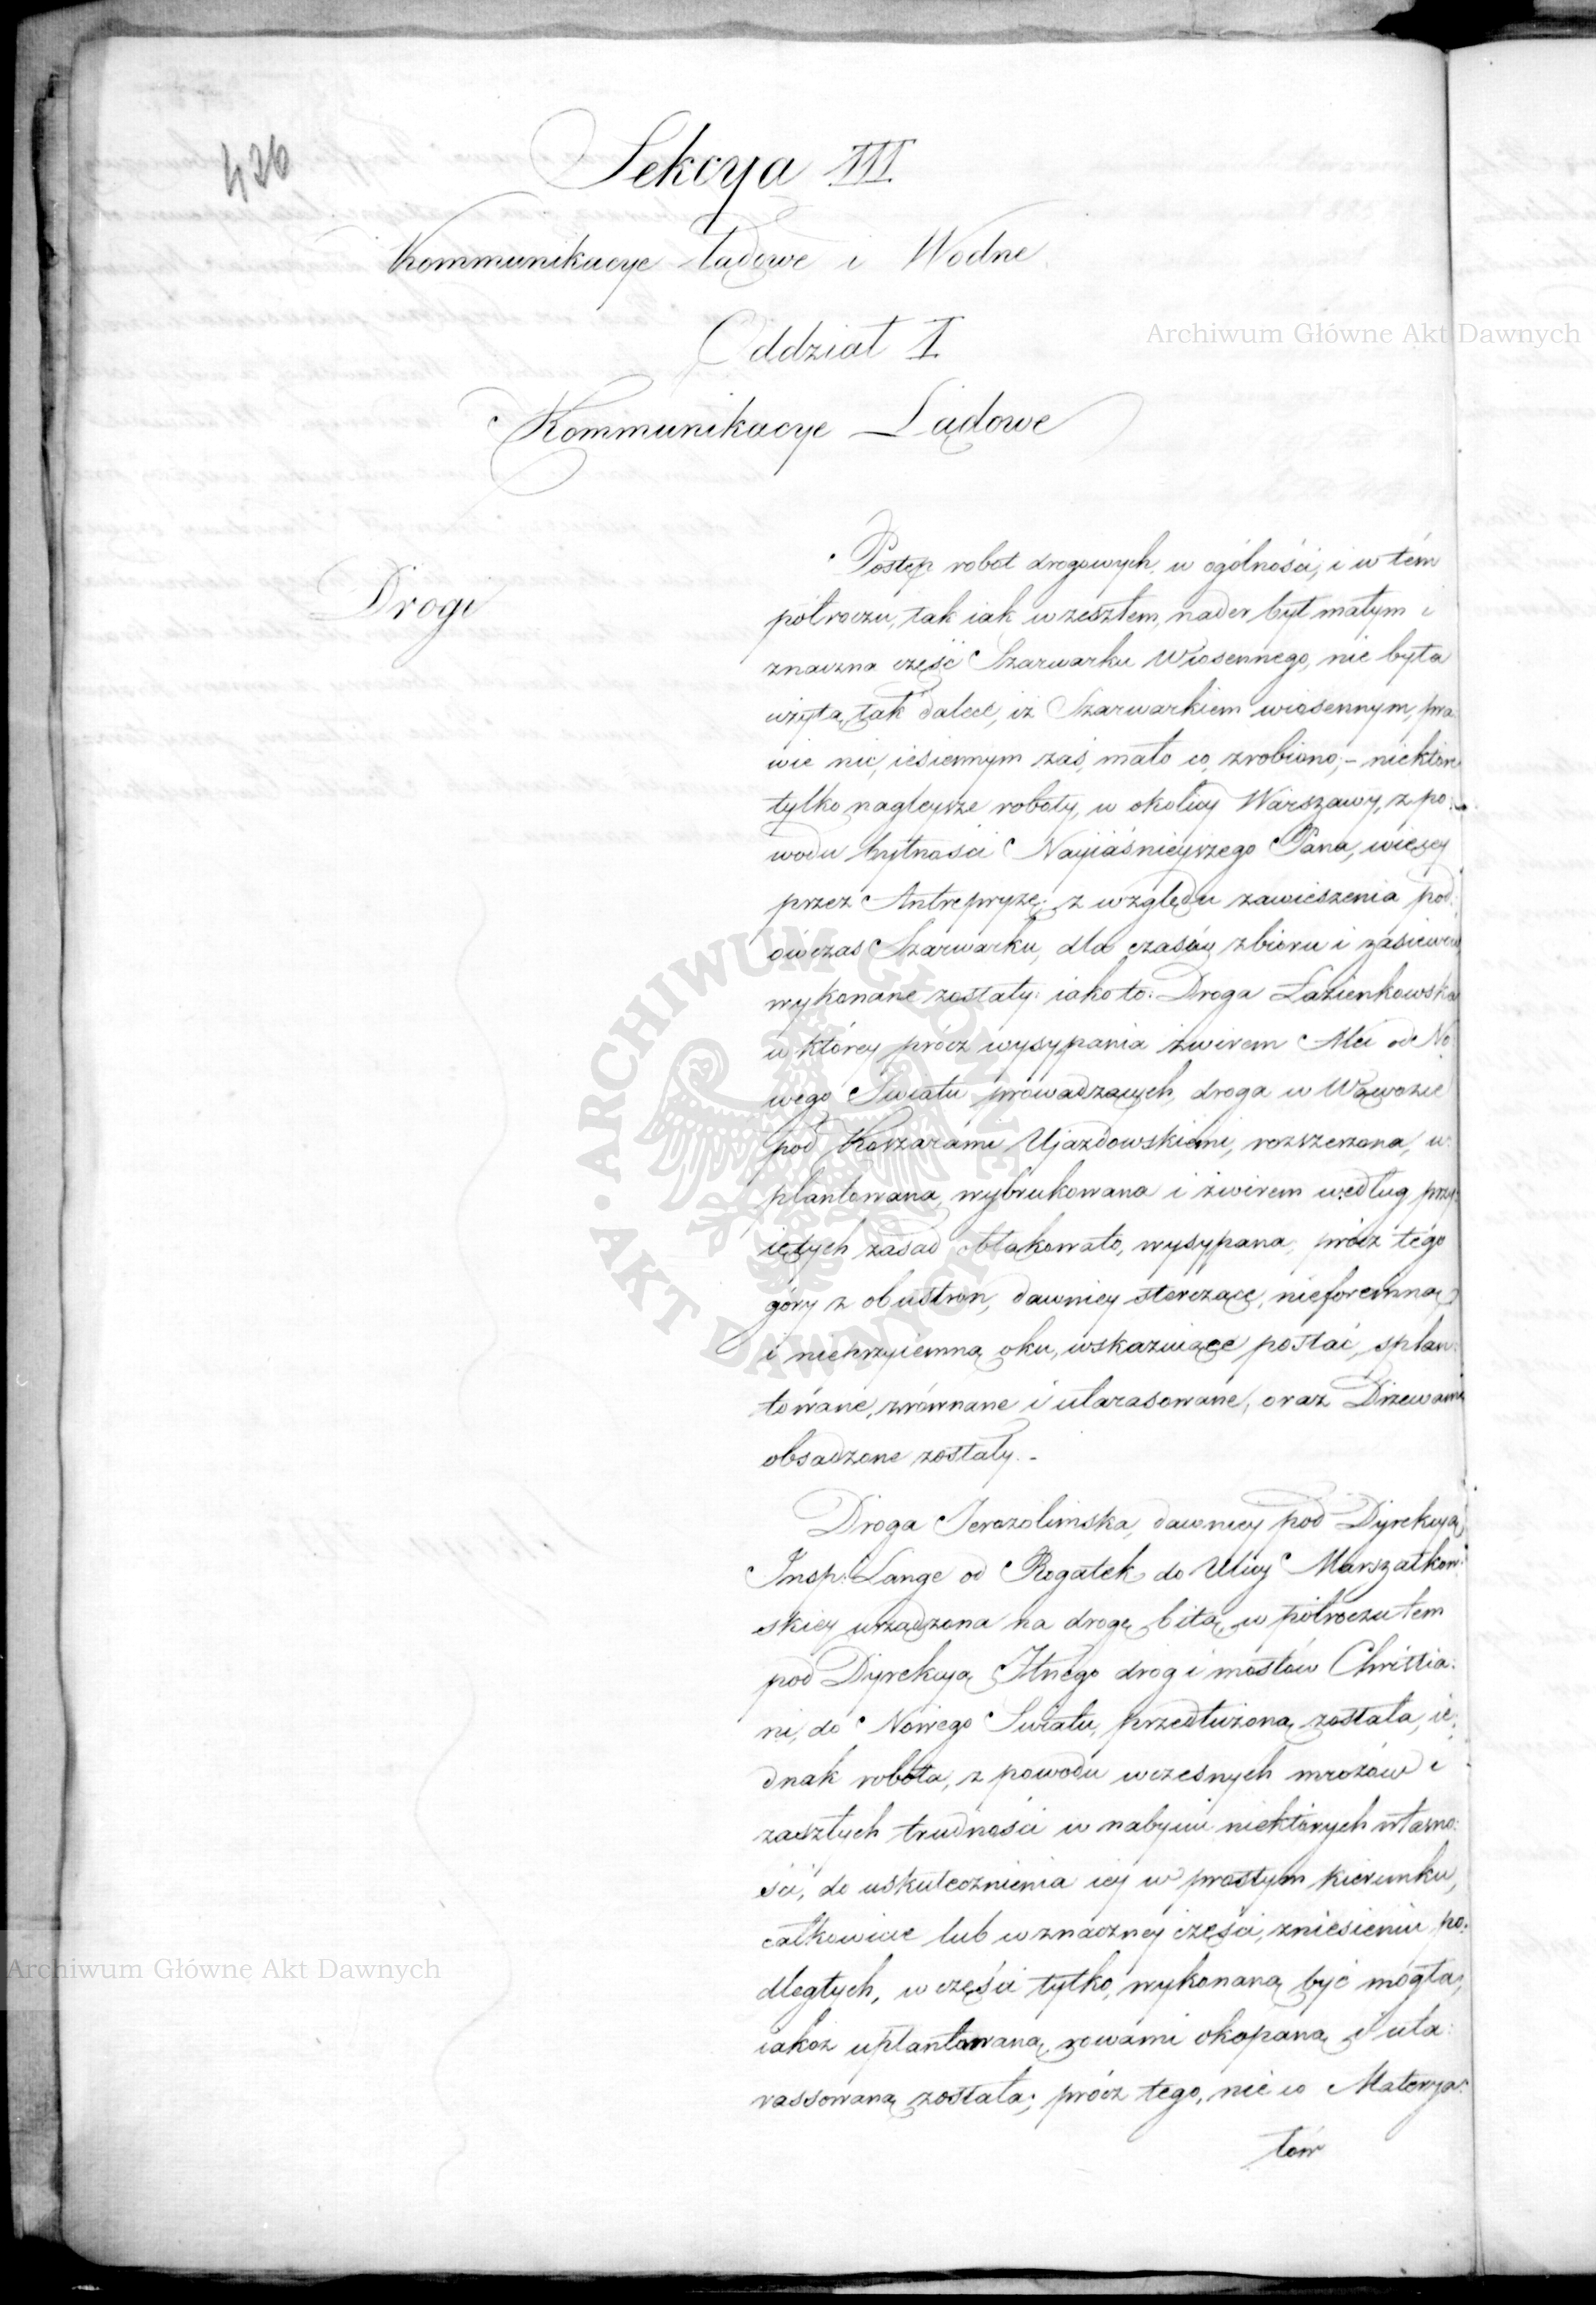 436
Sekcya III
Kommunikacye lądowe i Wodne
Oddział I
Kommunikacye Lądowe
Drogi
Postęp robot drogowych w ogólności, i w tém
półroczu, tak iak w zeszłem, nader był małym i
znaczna część Szarwarku Wiosennego, nie była
użytą, tak dalece, iż Szarwarkiem wiosennym, pra:
wie nic, iesiennym zaś, mało co, zrobiono; - niektóre
tylko nagleysze roboty, w okolicy Warszawy, z po:
wodu bytności Nayiaśnieyszego Pana, więcey
przez Antrepryzę, z względu zawieszenia pod:
ówczas Szarwarku, dla czasów zbioru i zasiewów
wykonane zostały: iako to: Droga Łazienkowska
w którey prócz wysypania żwirem Alei od No:
wego Swiatu prowadzących, droga w Wąwozie
pod Koszarami Ujazdowskiemi, rozszerzona, u:
plantowana, wybrukowana i żwirem według przy:
iętych zasad obłąkowato, wysypana, prócz tego
góry z obustron, dawniey sterczące, nieforemną
i nieprzyiemną oku, wskazuiące postać, splan:
towane, zrównane i utarasowane, oraz Drzewami
obsadzone zostały. -
Droga Jerozolimska, dawniey pod Dyrekcyą
Insp: Lange od Rogatek do Ulicy Marszałkow:
skiey urządzona na drogę bitą, w półroczu tem
pod Dyrekcyą Iżnego drog i mostów Christia:
ni, do Nowego Swiatu, przedłużoną została, ie:
dnak robota, z powodu wczesnych mrozów i
zaszłych trudności w nabyciu niektórych własno:
ści, do uskutecznienia iey w prostym kierunku,
całkowicie lub w znaczney części, zniesieniu po:
dległych, w części tylko, wykonaną być mogła,
iakoż uplantowaną, rowami okopaną i uta:
rassowaną została; prócz tego, nieco Materya:
łów
Archiwum Główne Akt Dawnych
Archiwum Główne Akt Dawnych
ARCHIWUM GŁÓWNE AKT DAWNYCH